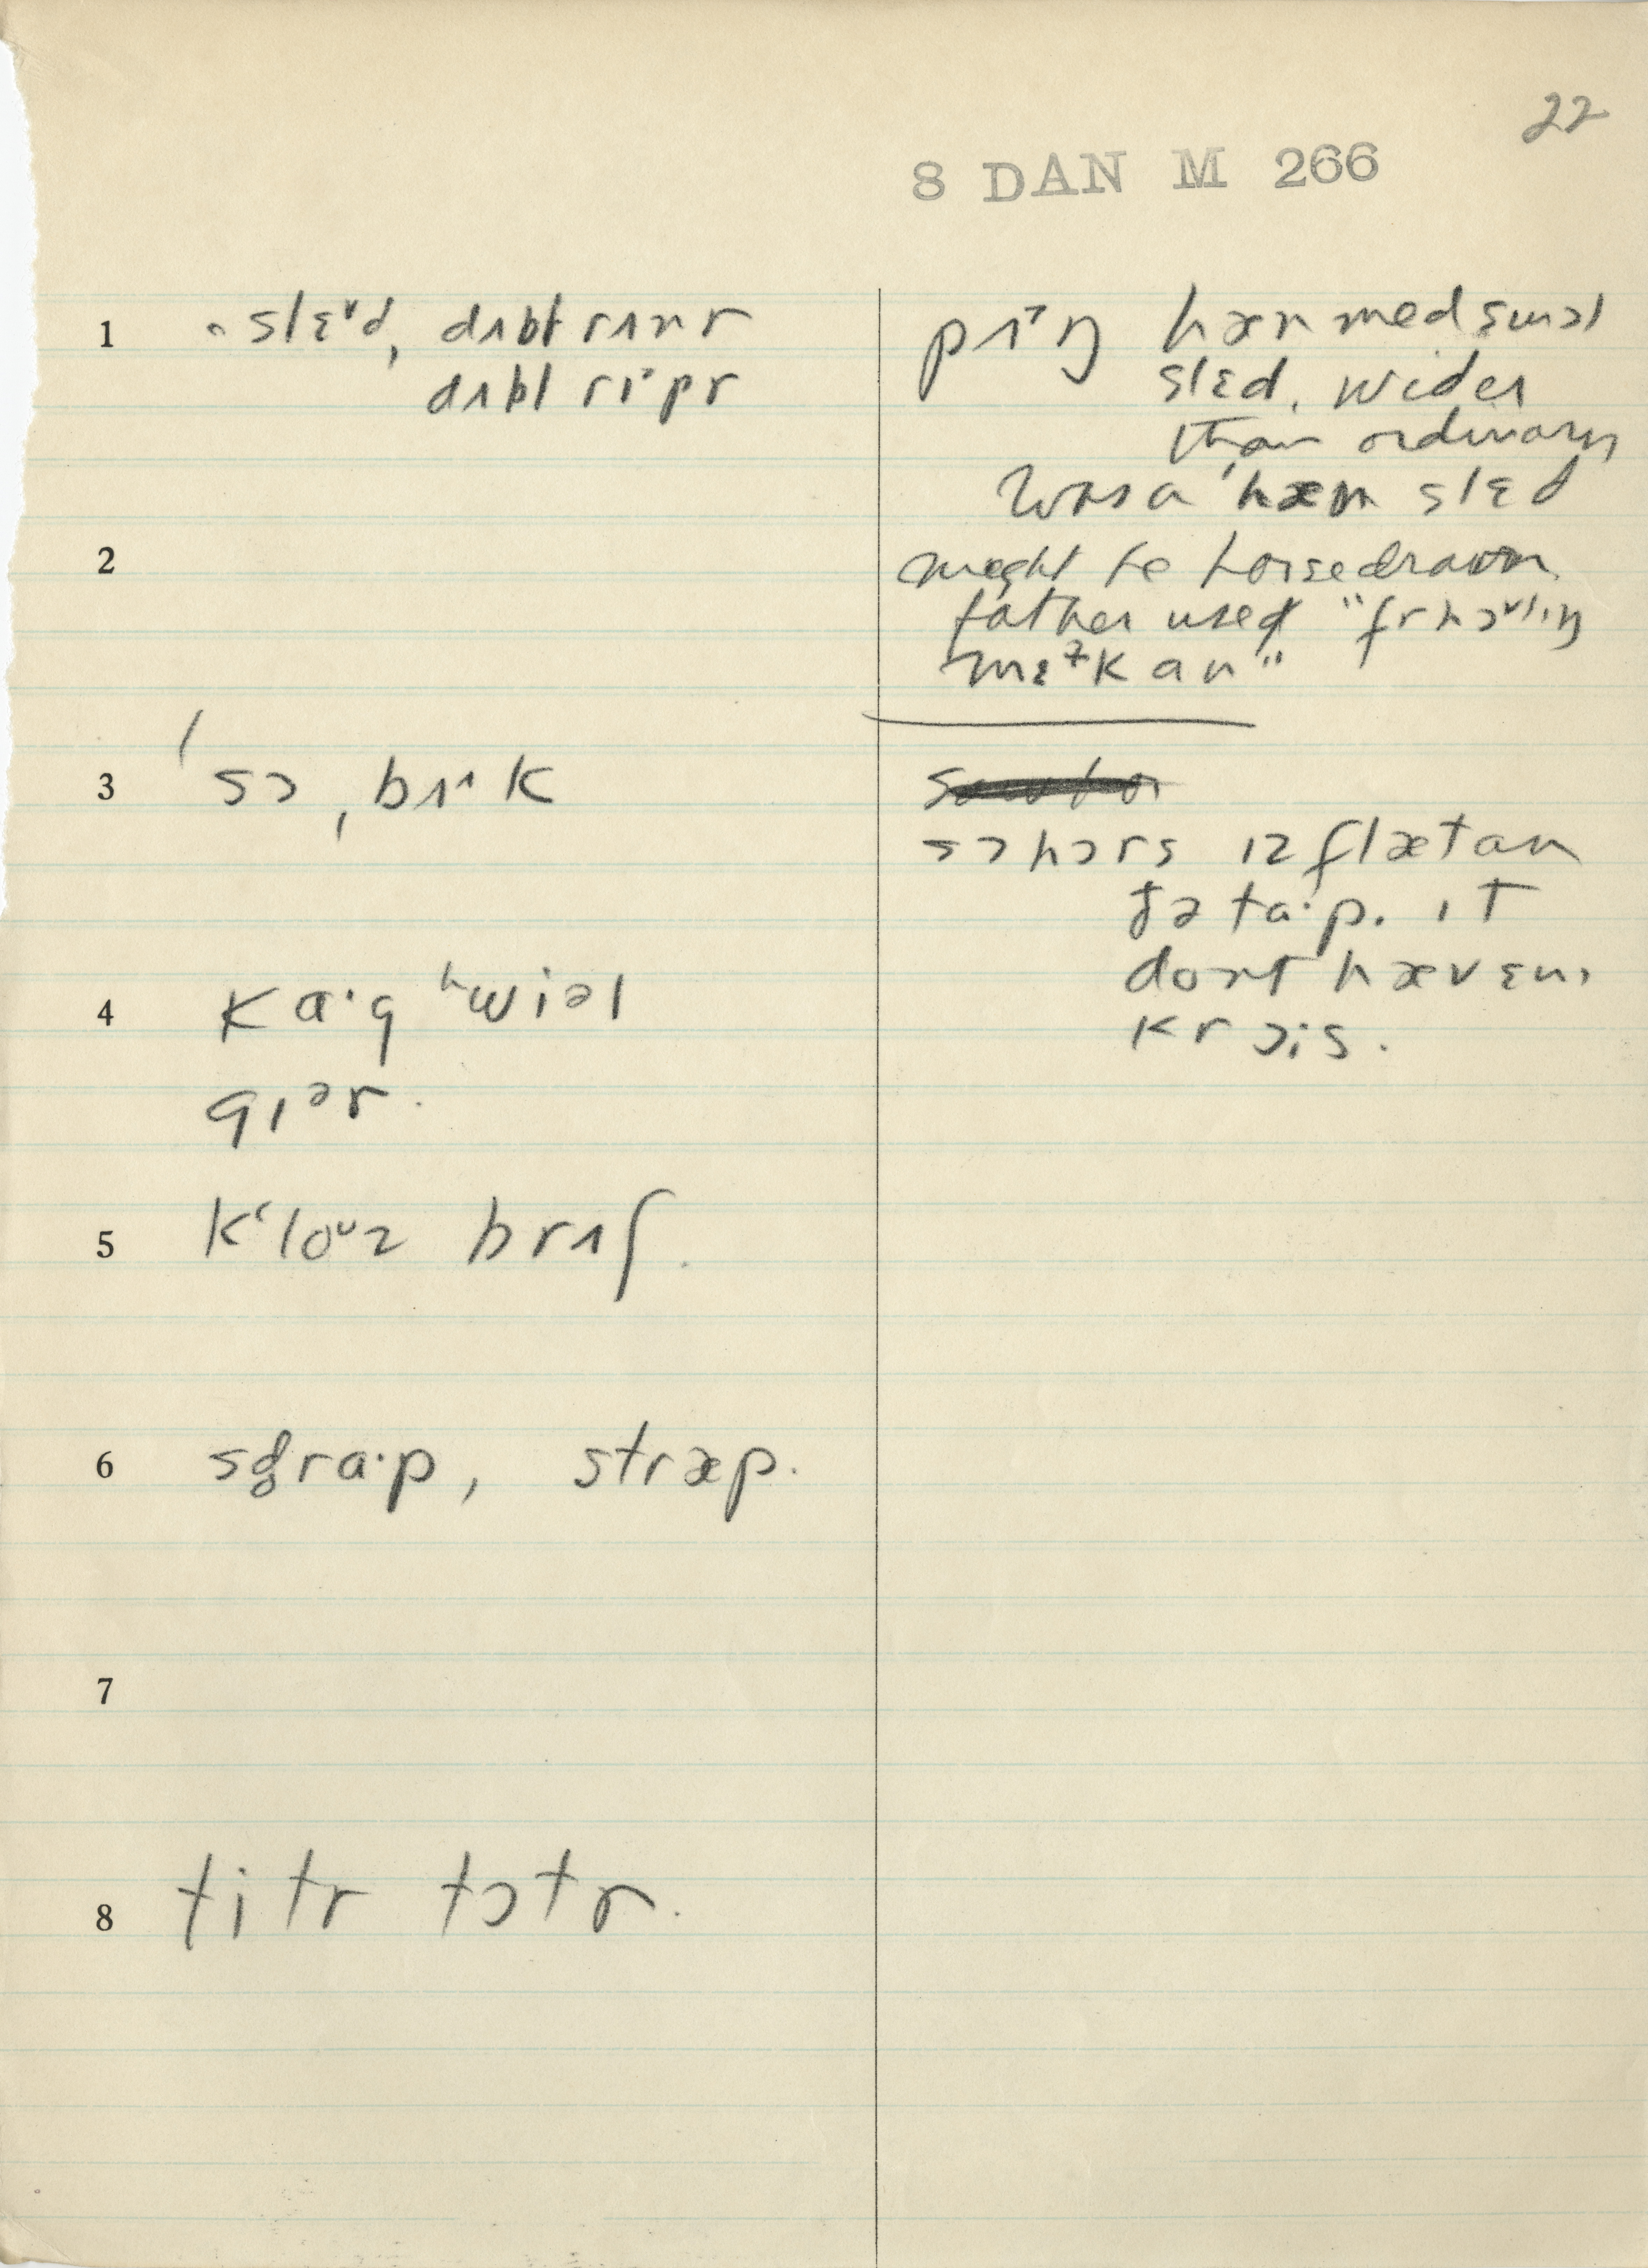 22
8 DAN M 266
1 slɛᵛd, dʌbl rʌnr
dʌbl rɪˑpr
pʌˑŋ hæn med smɔl
slɛd. wider
than ordinary
was a hæn slɛd
2
might be horsedrawn
father used "fr hɔᵘlɪŋ
mɛˀkan"
3 sɔ, bʌˑk
sɔ hɔrs ɪz flæt an
ðə taˑp. ɪt
dont hæv ɛnɪ
krɔis.
4 kaˑg ʰwiəl
gɪᵊr.
5 k'loᵘz brʌʃ.
6 straˑp, stræp.
7
8 titr tɔtr.